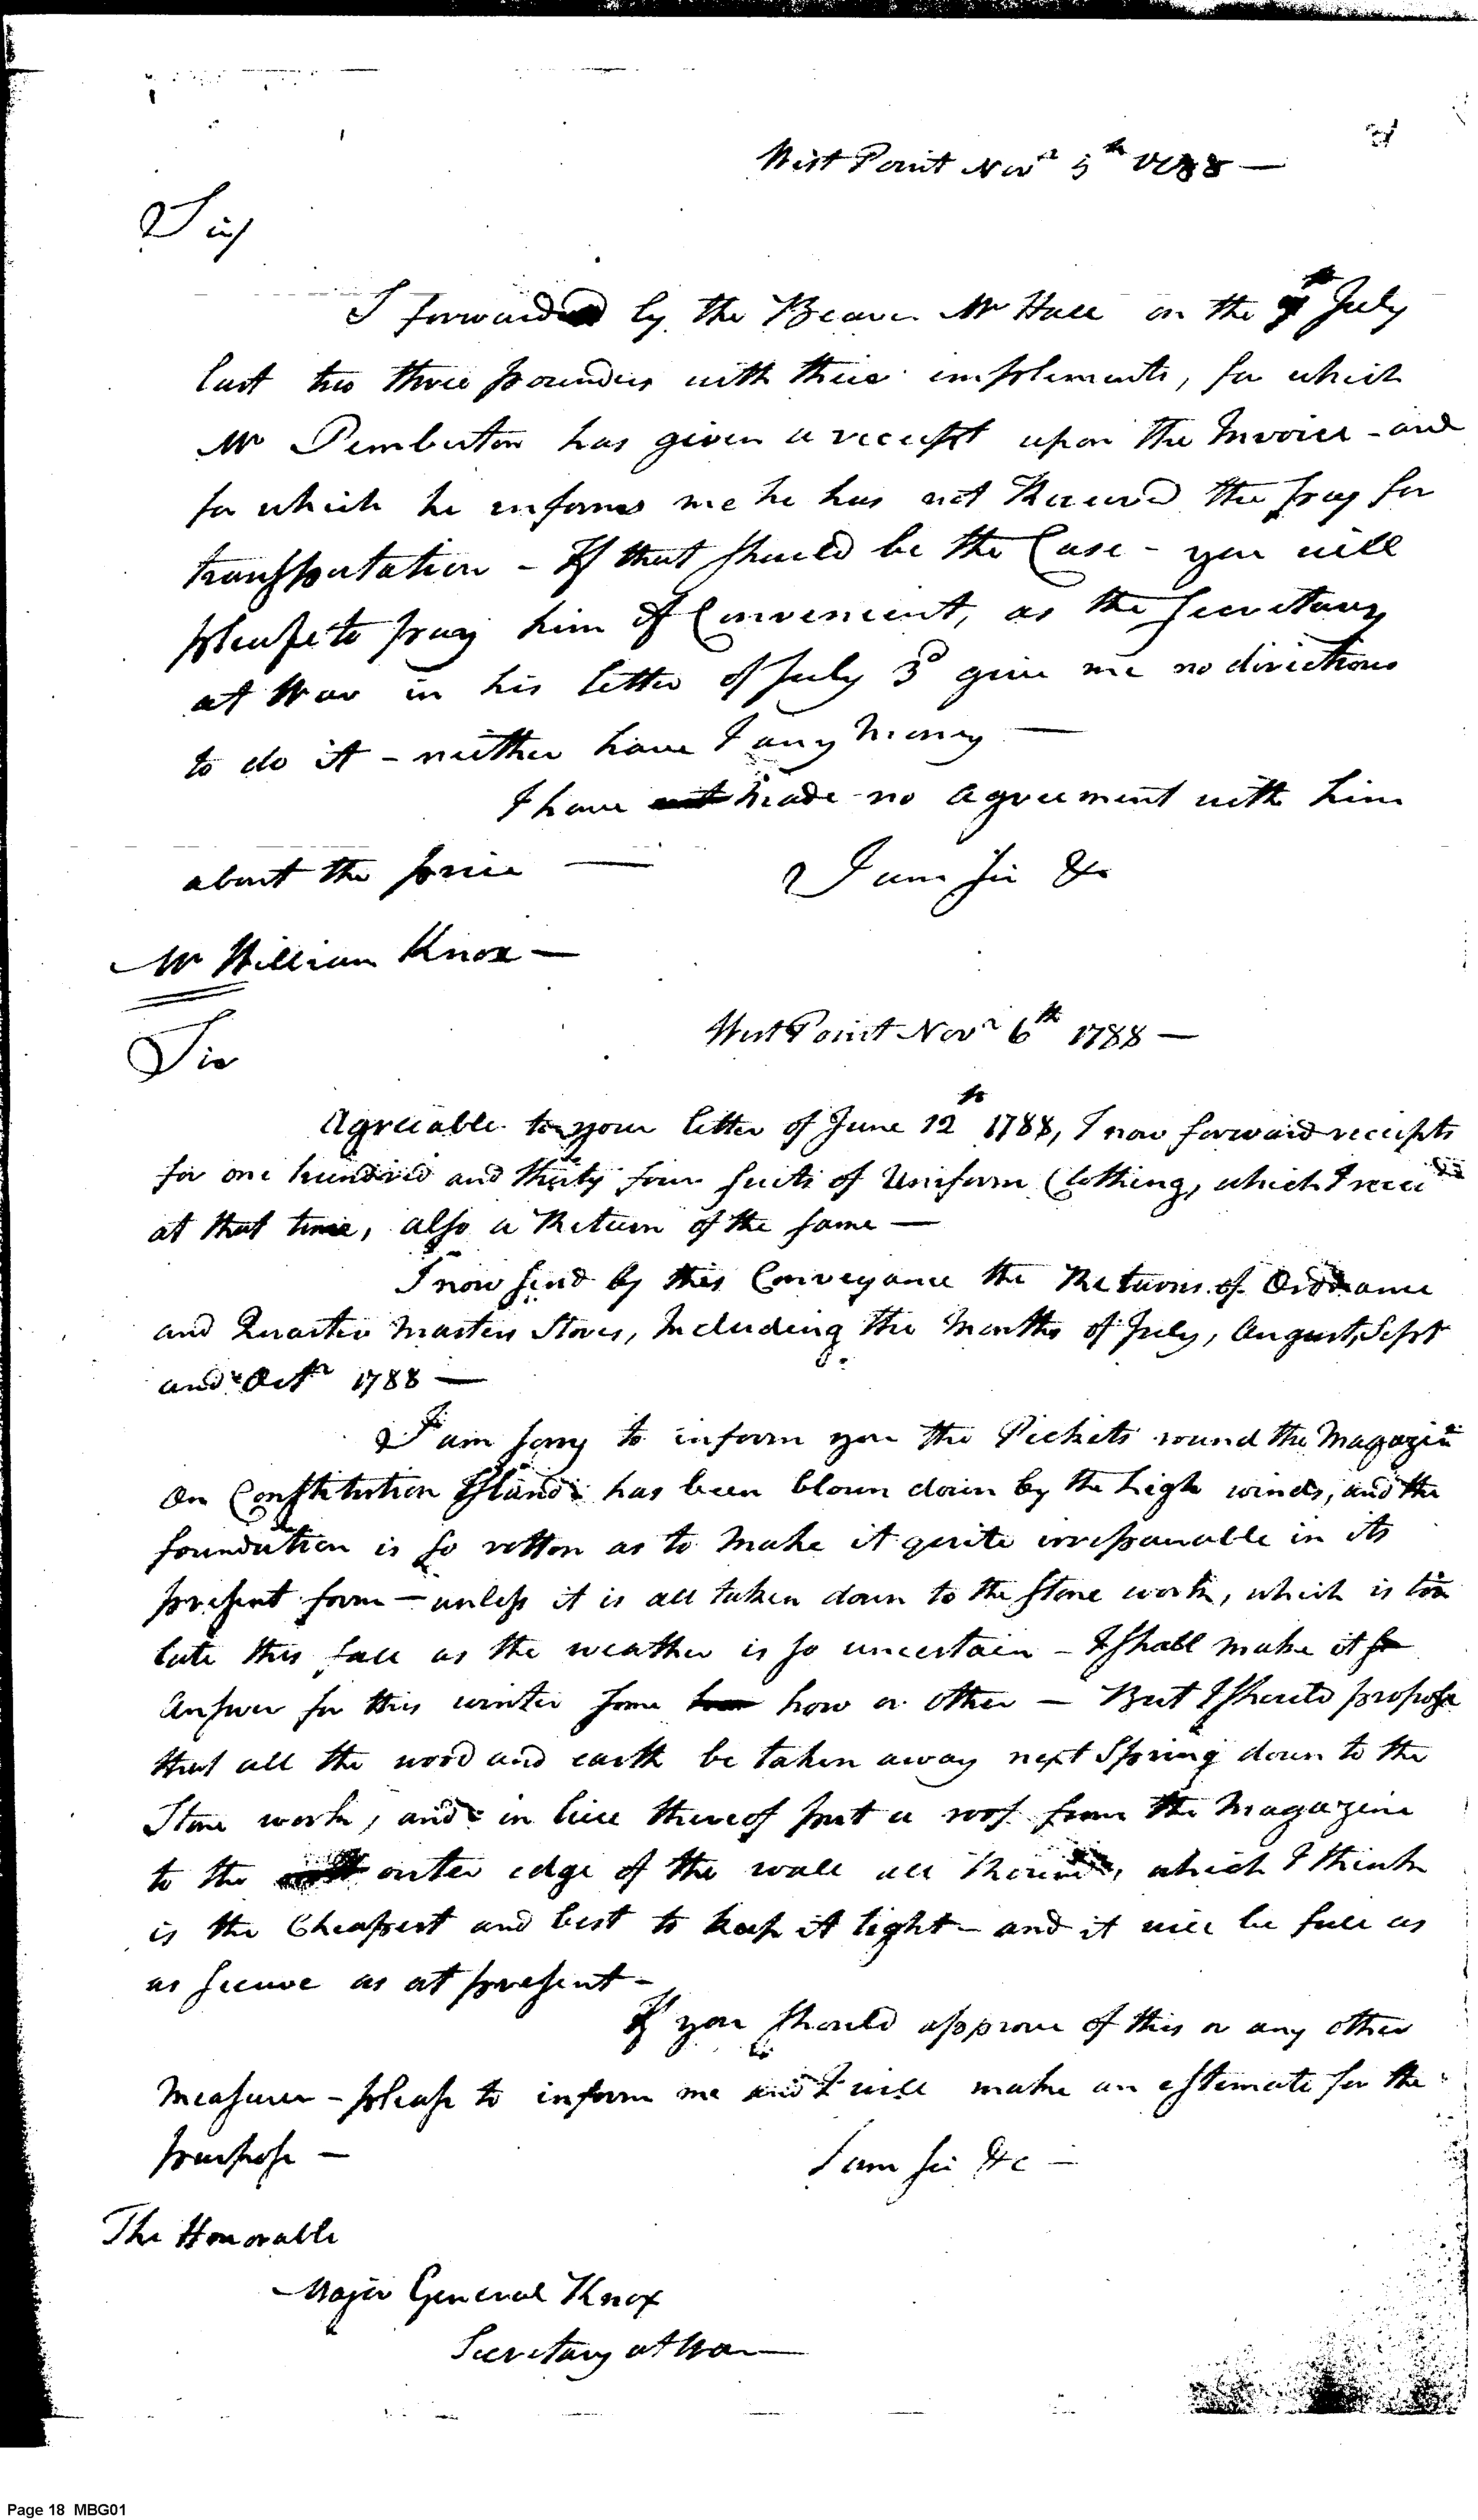 West Point Novr 5th 1788 —
Sir
I forwarded by the Beaver Mr Hall on the 9th July
last two three pounders with their implements, for which
Mr Pemberton has given a receipt upon the Invoice - and
for which he informs me he has not Received the pay for
transportation - If that should be the Case - you will
please to pay him if Convenient, as the Secretary
at War in his letter of July 3d give me no directions
to do it - neither have I any Money —
I have made no agreement with him
about the price — I am Sir &c
Mr William Knox —
West Point Novr 6th 1788 —
Sir
Agreeable to your letter of June 12th 1788, I now forward receipts
for one hundred and thirty four suits of Uniform Clothing, which I received
at that time, also a Return of the same —
I now send by this Conveyance the Returns of Ordnance
and Quarter Masters Stores, Including the Months of July, August, Sept
and Octr 1788 —
I am sorry to inform you the Pickets round the Magazin
On Constitution Island has been blown down by the high winds, and the
foundation is so rotton as to make it quite irrepairable in its
present form — unless it is all taken down to the stone work, which is too
late this fall as the weather is so uncertain - I shall make it
Answer for this winter some how or other — But I should propose
that all the wood and earth be taken away next Spring down to the
Stone work, and in lieu thereof put a roof from the Magazine
to the outer edge of the wall all Round, which I think
is the Cheapest and best to keep it tight - and it will be full as
as secure as at present -
If you should approve of this or any other
Measures - please to inform me and I will make an estemate for the
purpose — I am Sir &c —
The Honorable
Major General Knox
Secretary at War —
Page 18 MBG01